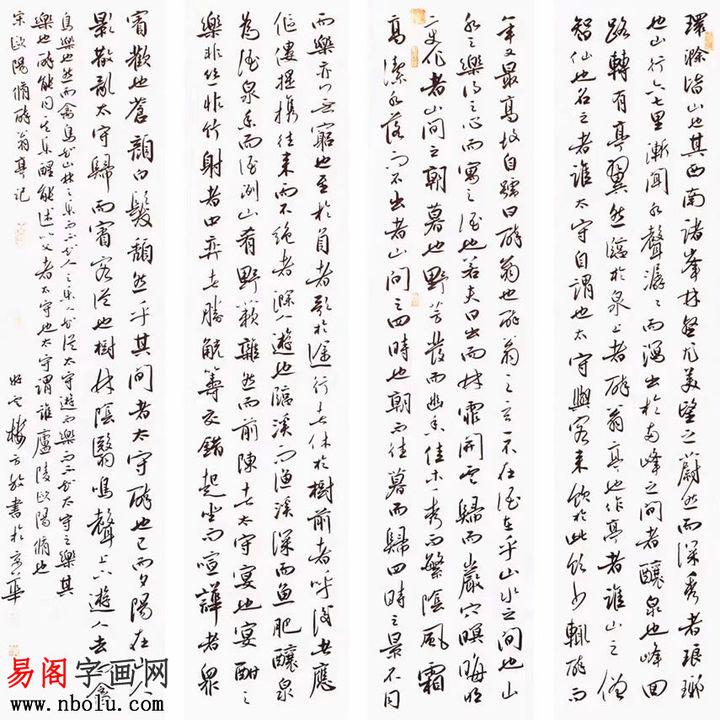 環滁皆山也其西南諸峯林壑尤美望之蔚然而深秀者琅琊
也山行六七里漸聞水聲潺〻而瀉出於兩峰之間者釀泉也峰回
路轉有亭翼然臨於泉上者醉翁亭也作亭者誰山之僧
智仙也名之者誰太守自謂也太守與客來飲於此飲少輒醉而
年又最高故自號曰醉翁也醉翁之意不在酒在乎山水之間也山
水之樂得之心而寓之酒也若夫日出而林霏開雲歸而巖穴暝晦明
變化者山間之朝暮也野芳發而幽香佳木秀而繁陰風霜
高潔水落而石出者山間之四時也朝而往暮而歸四時之景不同
而樂亦無窮也至於負者歌於途行者休於樹前者呼後者應
傴僂提攜往來而不絕者滁人遊也臨溪而漁溪深而魚肥釀泉
為酒泉香而酒洌山肴野蔌雜然而前陳者太守宴也宴酣之
樂非丝非竹射者中弈者勝觥籌交錯起坐而喧譁者衆
賓歡也蒼顏白髮頹然乎其間者太守醉也已而夕陽在山人
影散亂太守歸而賓客從也樹林陰翳鳴聲上下遊人去而禽
鳥樂也然而禽鳥知山林之樂而不知人之樂人知從太守遊而樂而不知太守之樂其
樂也醉能同其樂醒能述以文者太守也太守謂誰廬陵歐陽脩也
宋歐陽脩醉翁亭記
書於京華
易阁字画网
www.nbolu.com